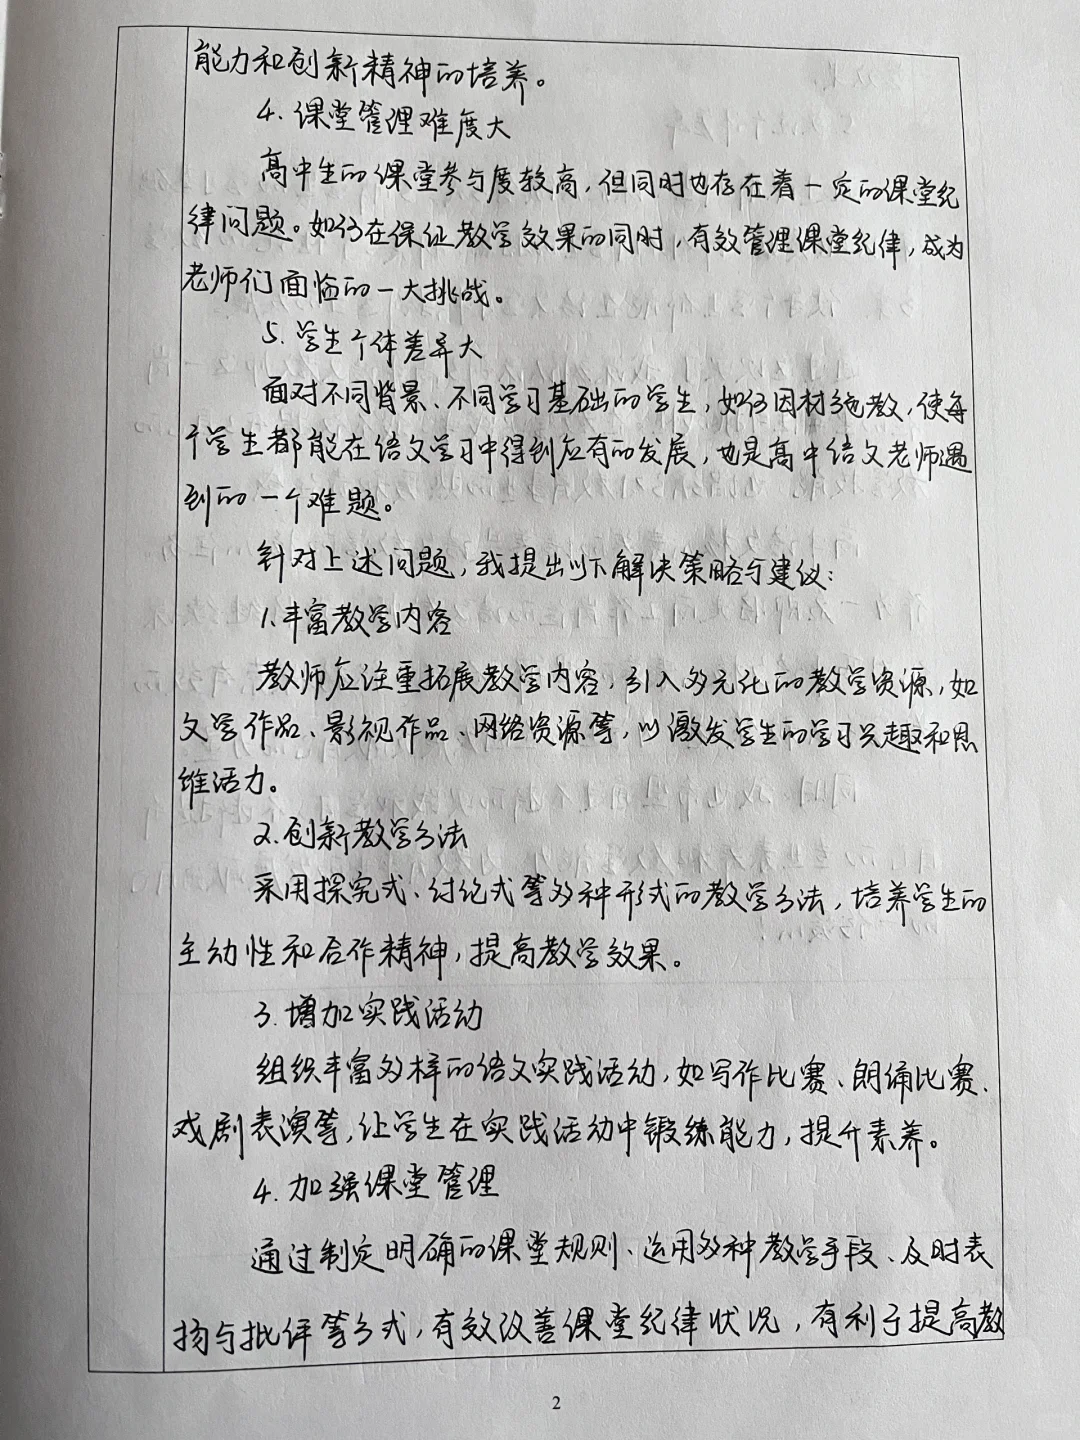 能力和创新精神的培养。
4. 课堂管理难度大
高中生的课堂参与度较高，但同时也存在着一定的课堂纪
律问题。如何在保证教学效果的同时，有效管理课堂纪律，成为
老师们面临的一大挑战。
5. 学生个体差异大
面对不同背景、不同学习基础的学生，如何因材施教，使每
个学生都能在语文学习中得到应有的发展，也是高中语文老师遇
到的一个难题。
针对上述问题，我提出以下解决策略与建议：
1. 丰富教学内容
教师应注重拓展教学内容，引入多元化的教学资源，如
文学作品、影视作品、网络资源等，以激发学生的学习兴趣和思
维活力。
2. 创新教学方法
采用探究式、讨论式等多种形式的教学方法，培养学生的
主动性和合作精神，提高教学效果。
3. 增加实践活动
组织丰富多样的语文实践活动，如写作比赛、朗诵比赛、
戏剧表演等，让学生在实践活动中锻练能力，提升素养。
4. 加强课堂管理
通过制定明确的课堂规则、运用多种教学手段、及时表
扬与批评等方式，有效改善课堂纪律状况，有利于提高教
2